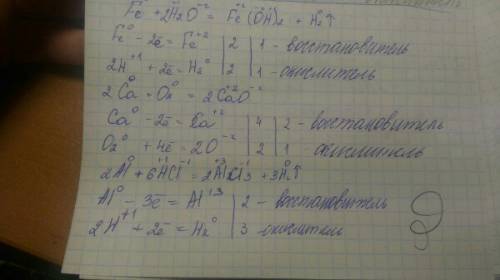 Fe⁰ + 2H₂⁺¹O⁻² = Fe⁺²(OH)₂ + H₂⁰↑
Fe⁰ - 2ē = Fe⁺² | 2 | 1 - восстановитель
2H⁺¹ + 2ē = H₂⁰ | 2 | 1 - окислитель
2Ca⁰ + O₂⁰ = 2Ca⁺²O⁻²
Ca⁰ - 2ē = Ca⁺² | 4 | 2 - восстановитель
O₂⁰ + 4ē = 2O⁻² | 2 | 1 окислитель
2Al⁰ + 6H⁺¹Cl⁻¹ = 2Al⁺³Cl⁻¹₃ + 3H₂⁰↑
Al⁰ - 3ē = Al⁺³ | 2 - восстановитель
2H⁺¹ + 2ē = H₂⁰ | 3 окислитель